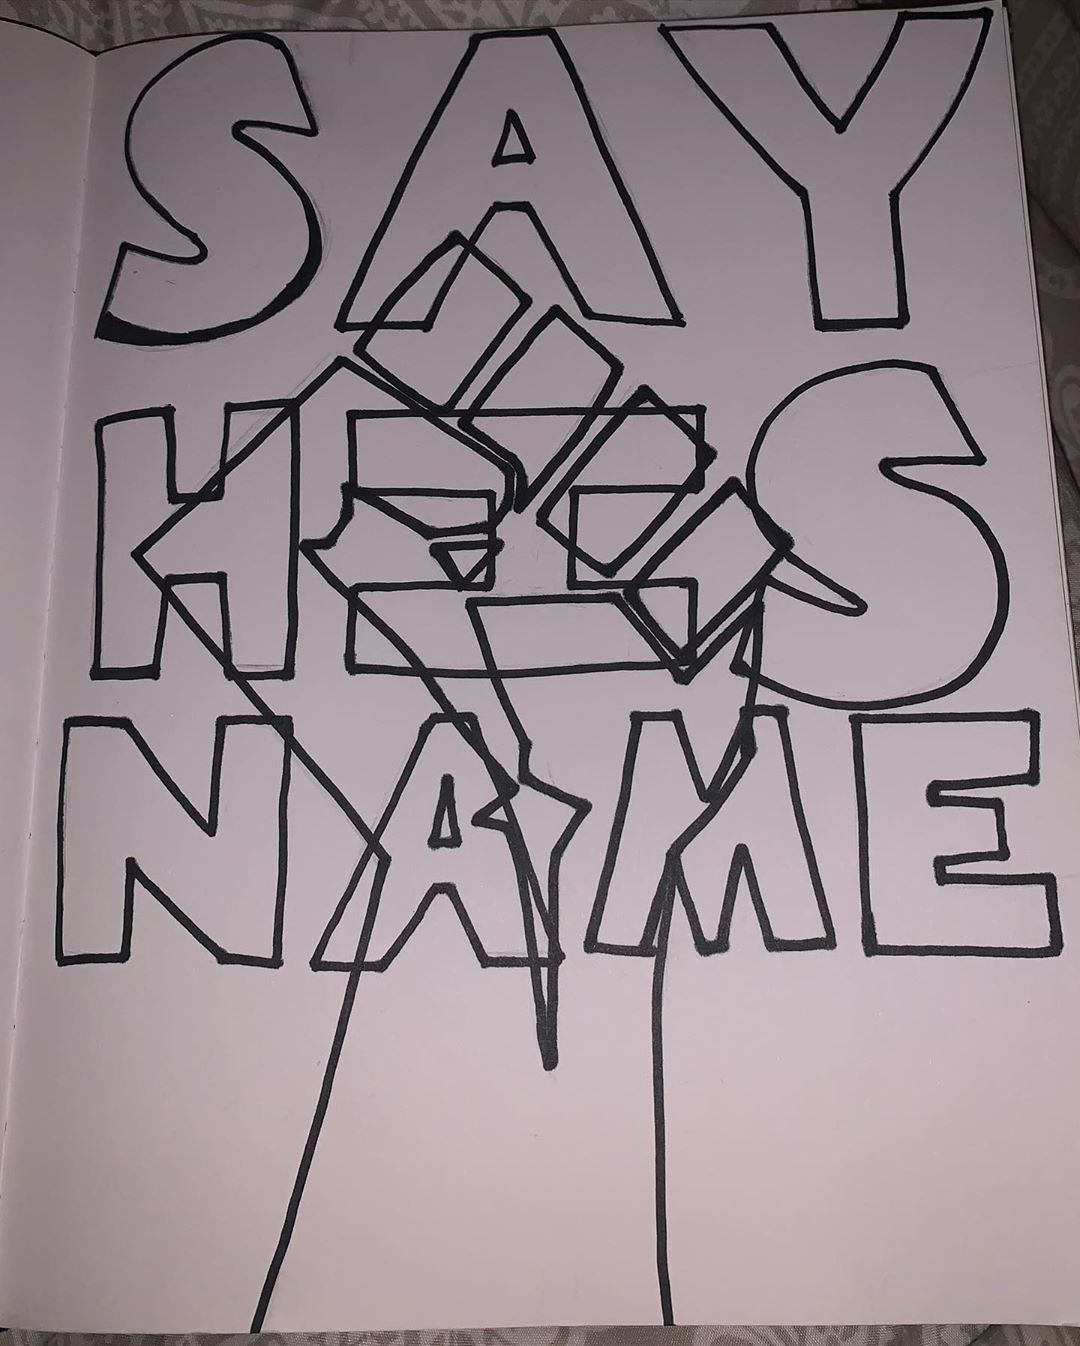 SAY
HIS
NAME